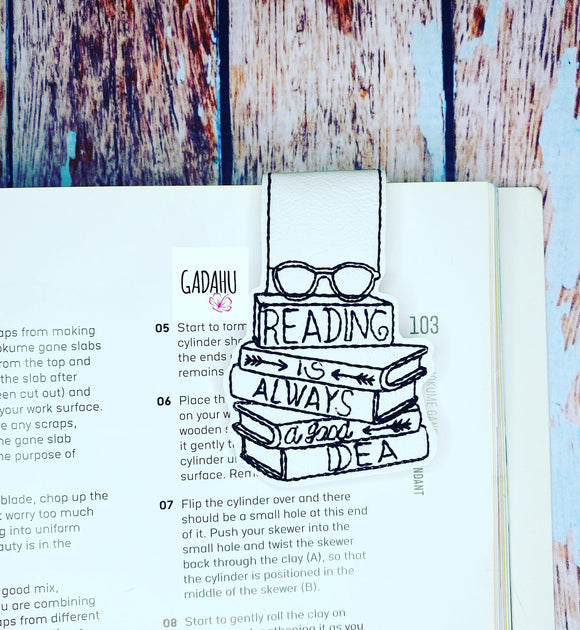 aps from making
okume gane slabs
from the top and
the slab after
een cut out) and
your work surface.
e any scraps,
ne gane slab
e purpose of
blade, chop up the
t worry too much
g into uniform
auty is in the
good mix,
u are combining
aps from different
GADAHU
05 Start to form
cylinder sho
the ends
remains
06 Place th
on your w
wooden s
it gently t
cylinder u
surface. Rem
07 Flip the cylinder over and there
should be a small hole at this end
of it. Push your skewer into the
small hole and twist the skewer
back through the clay (A), so that
the cylinder is positioned in the
middle of the skewer (B).
08 Start to gently roll the clay on
READING
IS
ALWAYS
a good
IDEA
103
OKUME GAN
NDANT